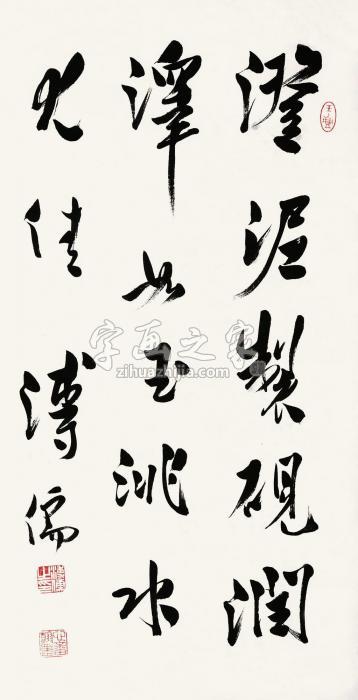 澄泥製硯潤
澤如玉洮水
尤佳 溥儒
字画之家
zihuazhijia.com